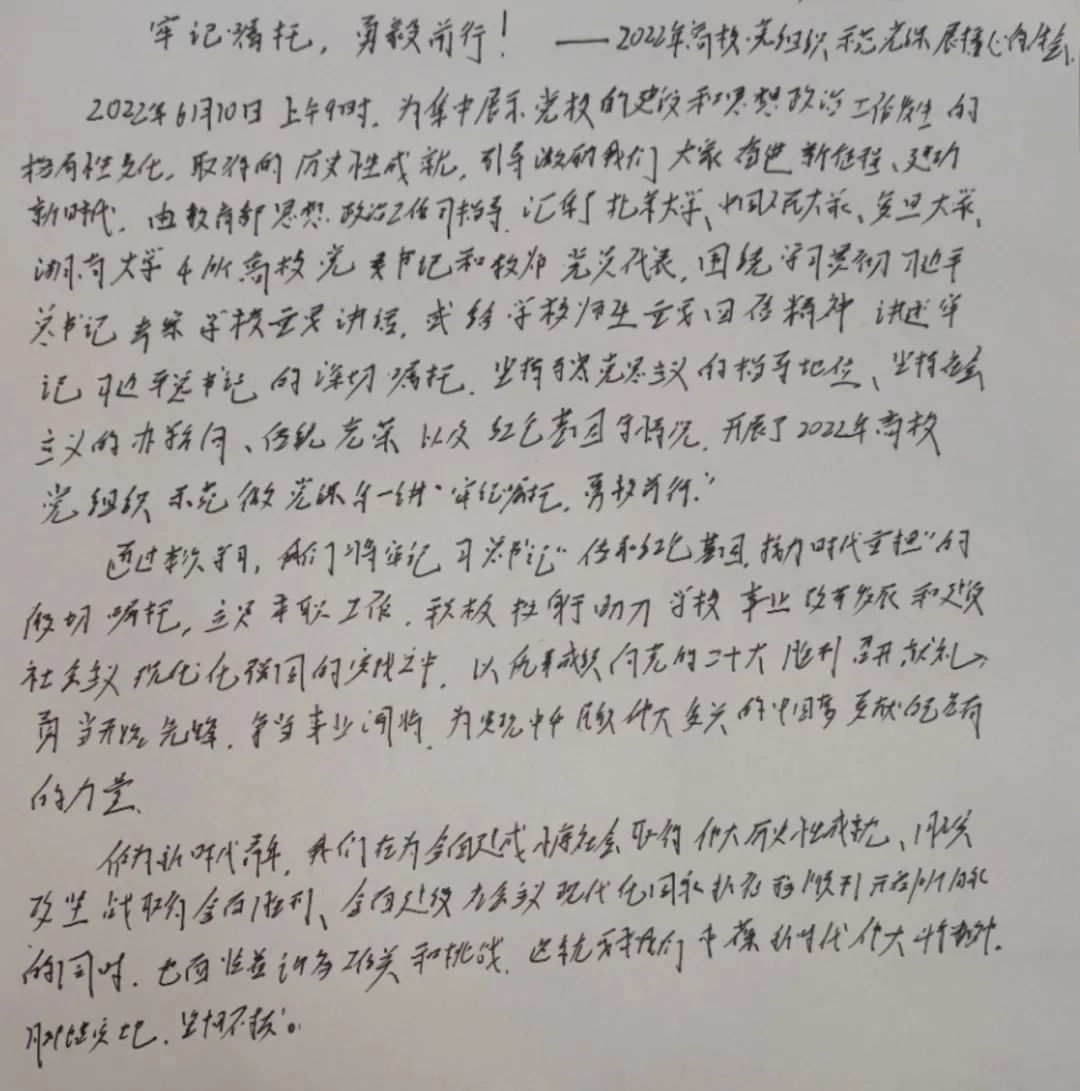 牢记嘱托，勇毅前行！ ——2022年高校党组织示范党课展播心得体会
2022年6月10日上午9时，为集中展示党校的建设和思想政治工作发生的
格局性变化，取得的历史性成就，引导激励我们大家奋进新征程、建功
新时代，由教育部思想政治工作司指导，汇集了北京大学、中国人民大学、复旦大学、
湖南大学4所高校党委书记和教师党员代表，围绕学习贯彻习近平
总书记考察学校重要讲话，或给学校师生重要回信精神讲述牢
记习近平总书记的深切嘱托，坚持马克思主义的指导地位、坚持社会
主义的办学方向、传统光荣以及红色基因等情况，开展了2022年高校
党组织示范微党课第一讲“牢记嘱托，勇毅前行。”
通过本次学习，我们将牢记习总书记“传承红色基因，接力时代重担”的
殷切嘱托，立足本职工作，积极投身助力学校事业改革发展和建设
社会主义现代化强国的实践之中，以优异成绩向党的二十大胜利召开献礼，
勇当开路先锋，争当事业闯将，为实现中华民族伟大复兴的中国梦贡献自己应有
的力量。
作为新时代青年，我们在为全面建成小康社会取得伟大历史性成就、脱贫
攻坚战取得全面胜利、全面建设社会主义现代化国家新征程顺利开启
的同时，也面临着许多难关和挑战，这就要求我们发扬新时代伟大斗争精神，
脚踏实地，坚韧不拔。